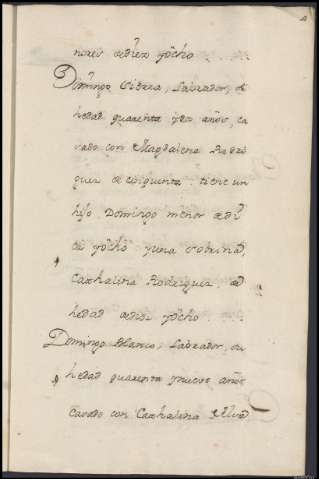 nores de diez y ocho
Domingo Videra, Labrador, su
hedad quarenta y dos años, ca
sado con Magdalena Rodri
guez de cinquenta: tiene un
hijo, Domingo menor de di
ez y ocho y una sobrina,
Cathalina Rodriguez, de
hedad de diez y ocho.
Domingo Blanco, Labrador, su
hedad quarenta y nueve años
Casado con Cathalina